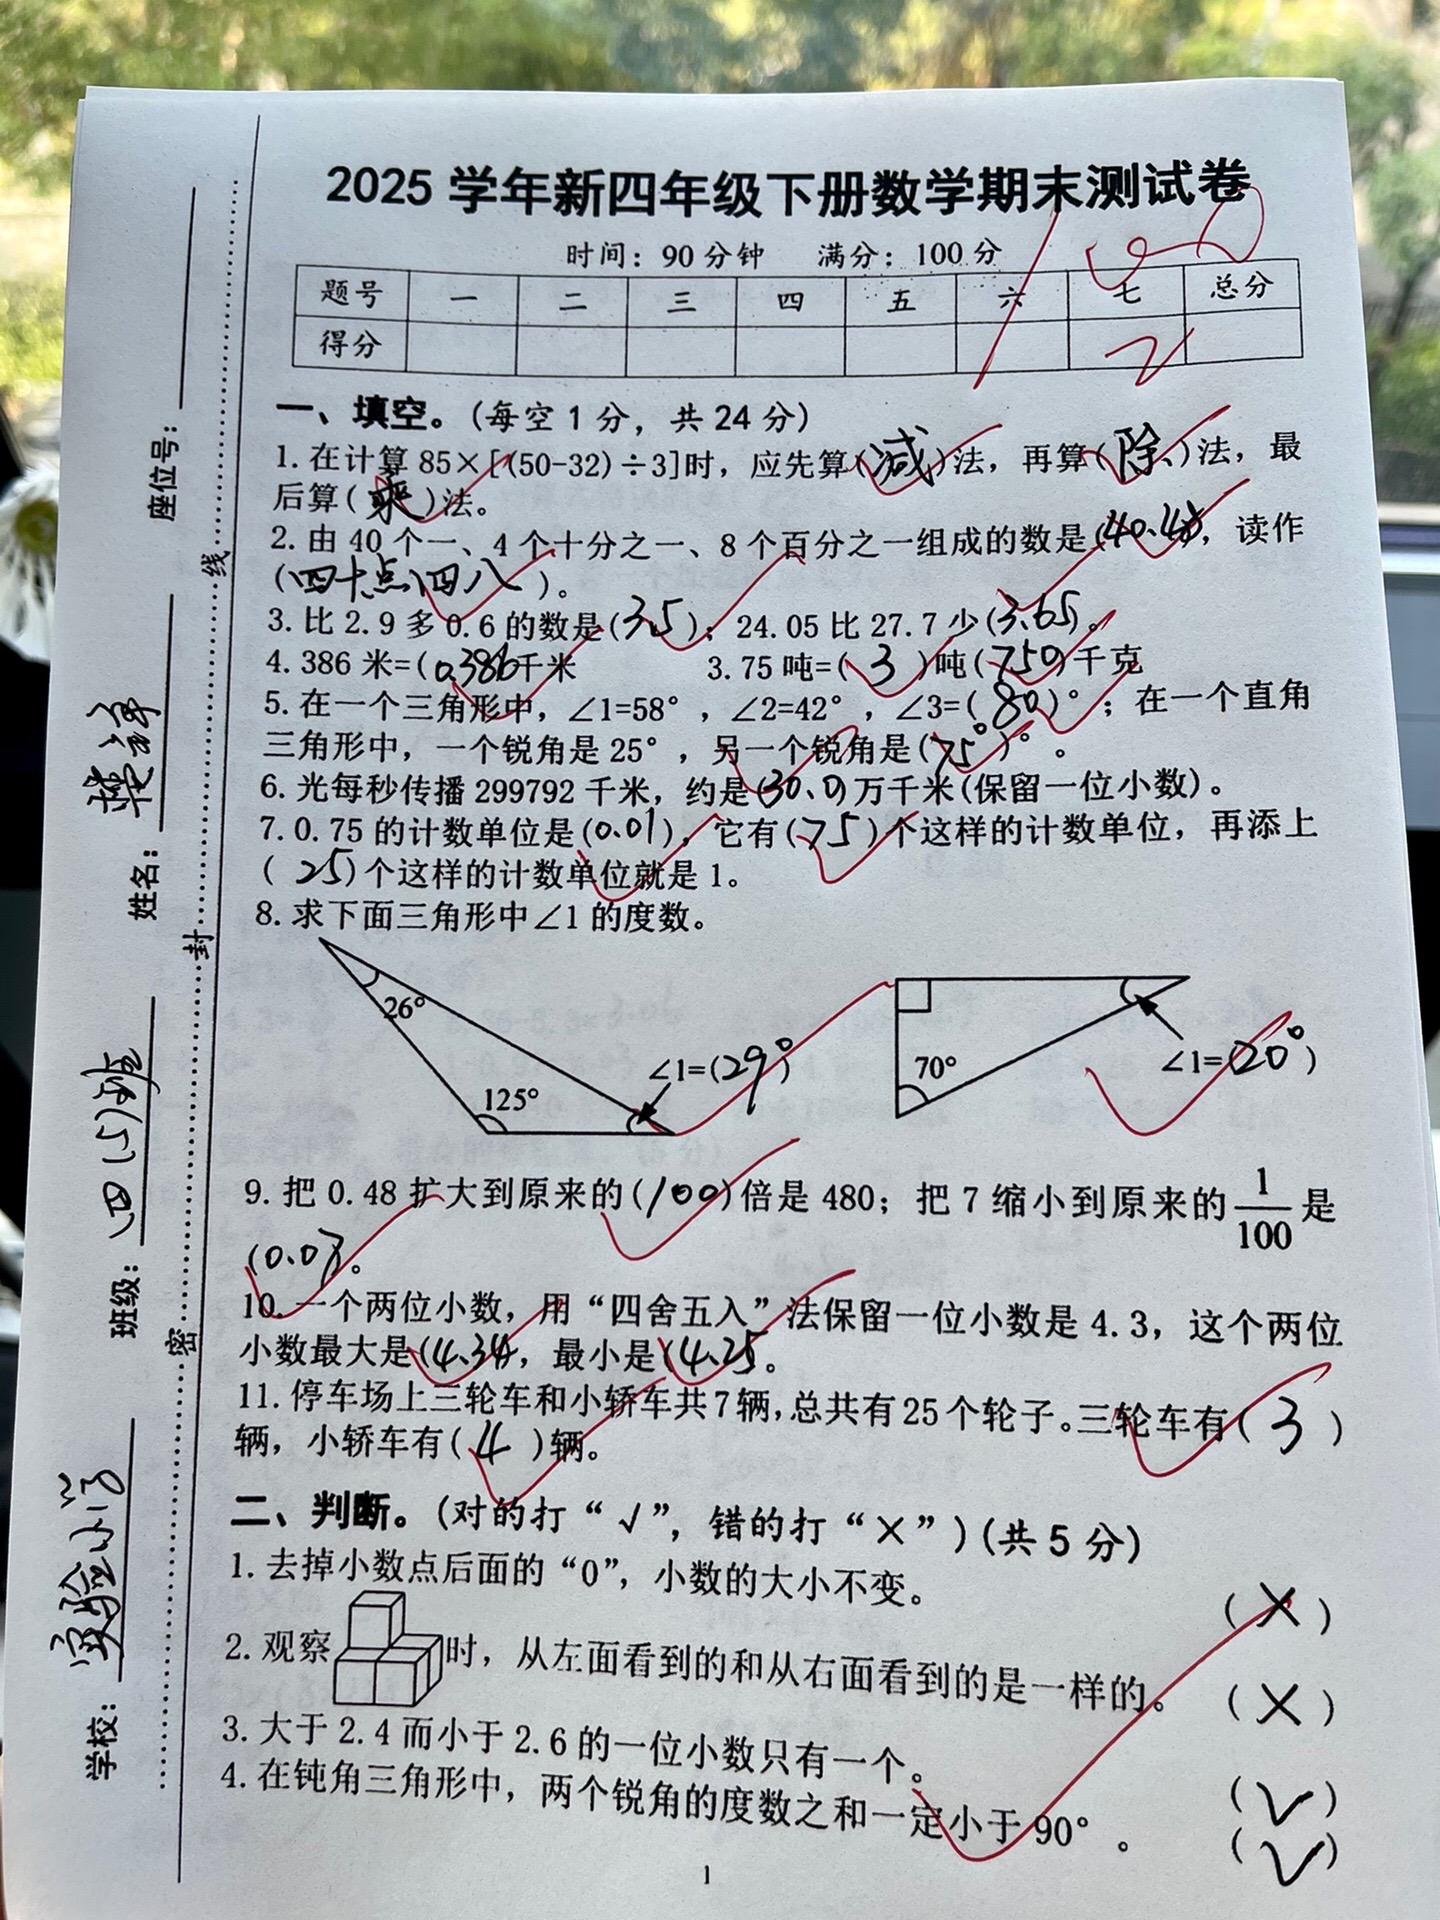 2025学年新四年级下册数学期末测试卷
时间：90分钟 满分：100分
题号 一 二 三 四 五 六 七 总分
得分
一、填空。（每空1分，共24分）
1. 在计算85×[(50-32)÷3]时，应先算(减)法，再算(除)法，最
后算(乘)法。
2. 由40个一、4个十分之一、8个百分之一组成的数是(40.48)，读作
(四十点四八)。
3. 比2.9多0.6的数是(3.5)；24.05比27.7少(3.65)。
4. 386米=(0.386)千米 3.75吨=(3)吨(750)千克
5. 在一个三角形中，∠1=58°，∠2=42°，∠3=(80)°；在一个直角
三角形中，一个锐角是25°，另一个锐角是(75°)°。
6. 光每秒传播299792千米，约是(30.0)万千米(保留一位小数)。
7. 0.75的计数单位是(0.01)，它有(75)个这样的计数单位，再添上
(25)个这样的计数单位就是1。
8. 求下面三角形中∠1的度数。
26°
125°
∠1=(29°)
70°
∠1=(20°)
9. 把0.48扩大到原来的(100)倍是480；把7缩小到原来的1/100是
(0.07)。
10. 一个两位小数，用“四舍五入”法保留一位小数是4.3，这个两位
小数最大是(4.34)，最小是(4.25)。
11. 停车场上三轮车和小轿车共7辆，总共有25个轮子。三轮车有(3)
辆，小轿车有(4)辆。
二、判断。（对的打“√”，错的打“×”）（共5分）
1. 去掉小数点后面的“0”，小数的大小不变。 (×)
2. 观察 时，从左面看到的和从右面看到的是一样的。 (×)
3. 大于2.4而小于2.6的一位小数只有一个。 (√)
4. 在钝角三角形中，两个锐角的度数之和一定小于90°。 (√)
1
学校：实验小学 班级：四(5)班 姓名： 座位号：
密 封 线